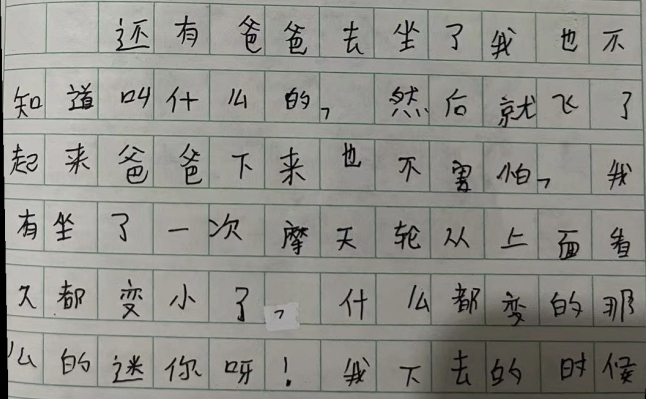 还有爸爸去坐了我也不
知道叫什么的，然后就飞了
起来爸爸下来也不害怕，我
有坐了一次摩天轮从上面看
久都变小了，什么都变的那
么的迷你呀！我下去的时候